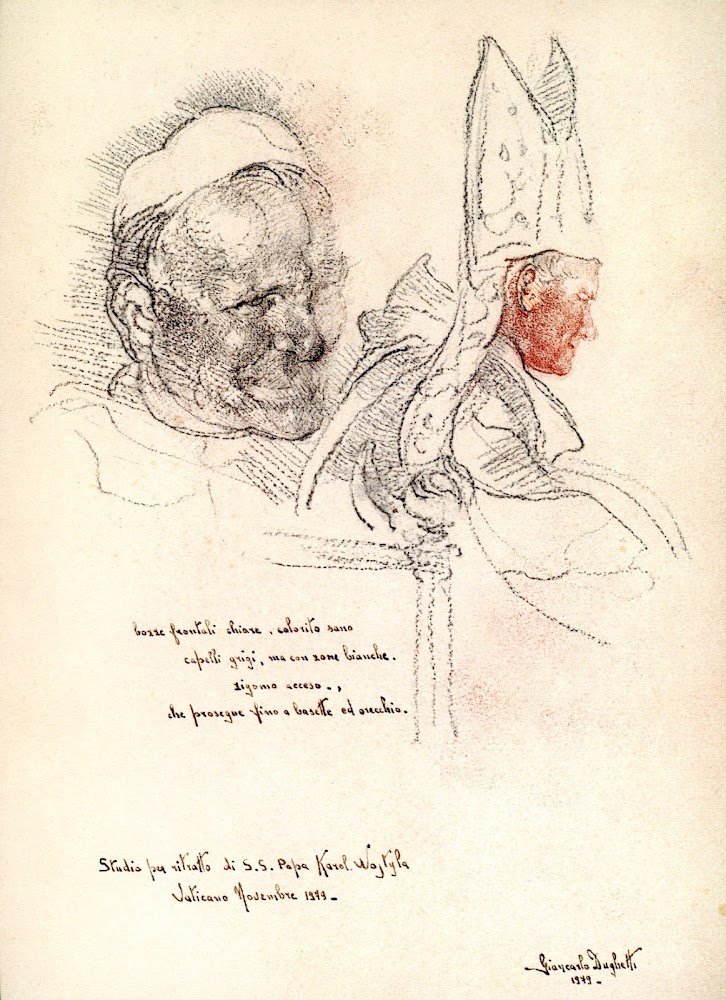 bozze frontali chiare, colorito sano
capelli grigi, ma con zone bianche.
zigomo acceso.,
che prosegue fino a basette ed orecchio.
Studio per ritratto di S.S. Papa Karol Wojtyla
Vaticano Novembre 1979_
Giancarlo Dughetti
1979_